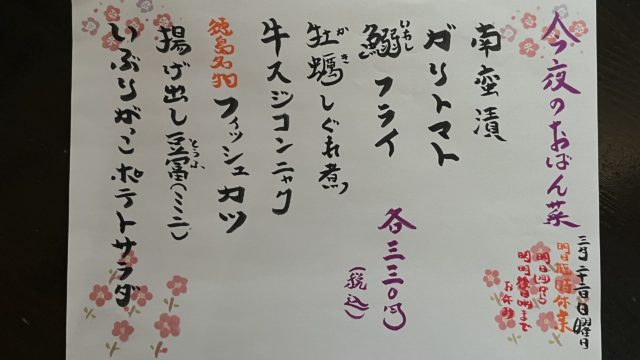 今夜のおばん菜
三月二十二日日曜日
明日臨時休業
明日四から
明明後日まで
お休み
南蛮漬
ガリトマト
鰯フライ
いわし
牡蠣しぐれ煮
かき
牛スジコンニャク
徳島名物
フィッシュカツ
揚げ出し豆富(ミニ)
とうふ
いぶりがっこポテトサラダ
各三三〇円
(税込)